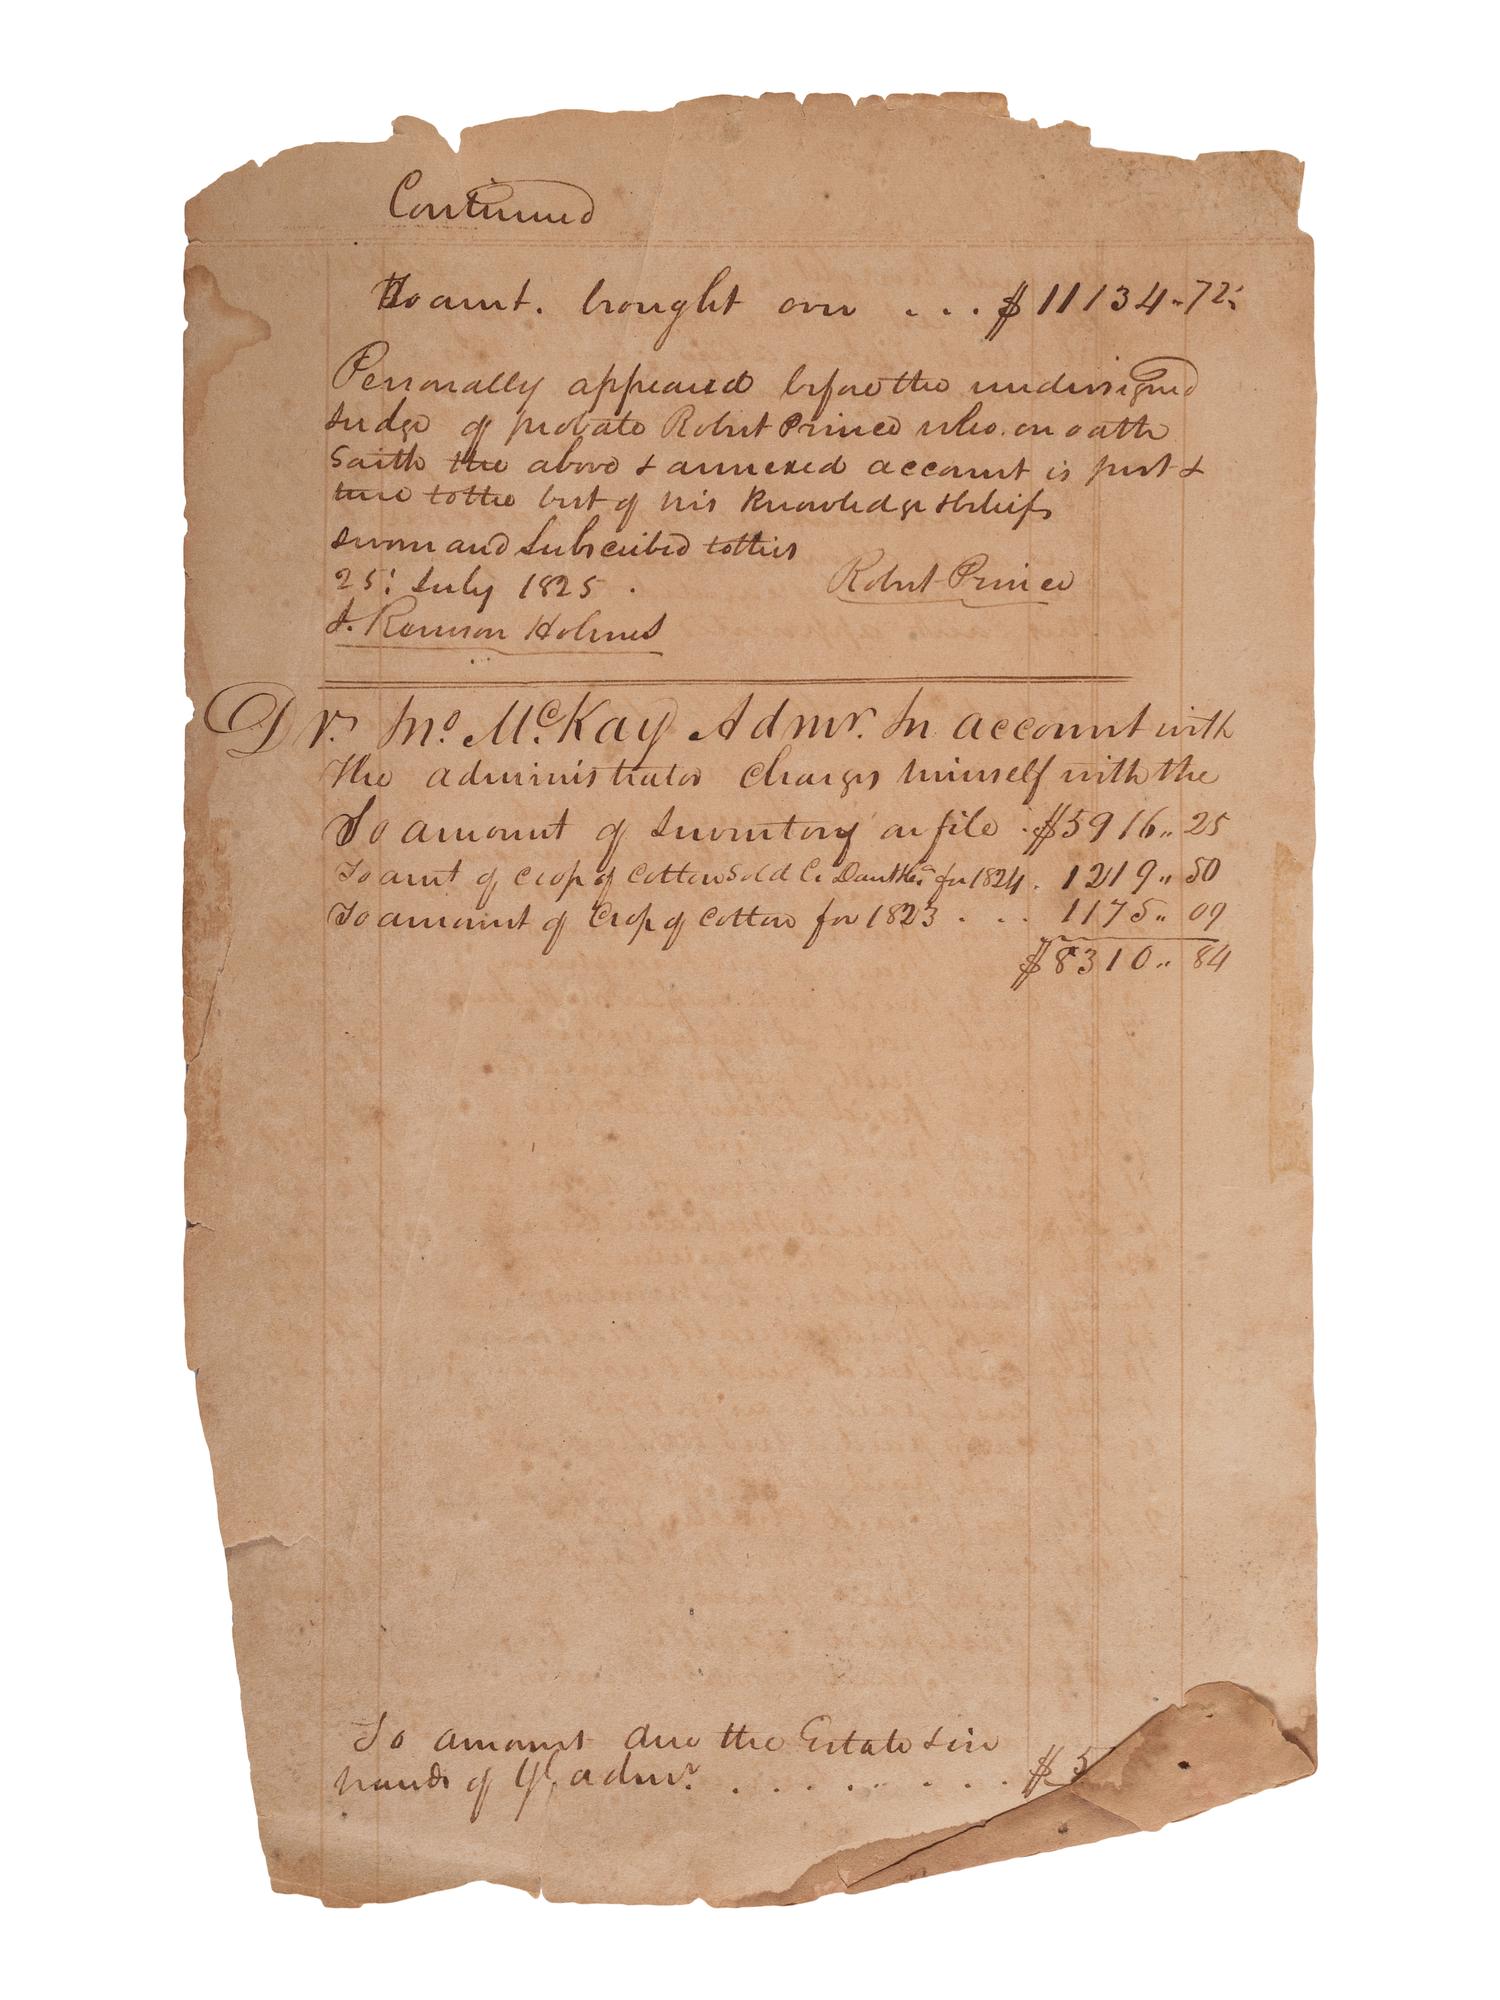 Continued
To amt. brought over ... $11134.. 72
Personally appeared before the undersigned
Judge of probate Robert Prince who on oath
Saith the above & annexed account is just &
true to the best of his Knowledge & beliefs
sworn and Subscribed to this
25: July 1825. Robert Prince
J. Ramson Holmes
Dr. Jno. McKay Admr. In account with
The administrator Charges himself with the
To amount of Inventory on file . $5916.. 25
To amt of crop of cotton Sold for 1824. 1219.. 50
To amount of Crop of Cotton for 1823 . . . 1175.. 09
$8310.. 84
To amount due the Estate & in
hands of Ye admr. . . . . . . . . $5